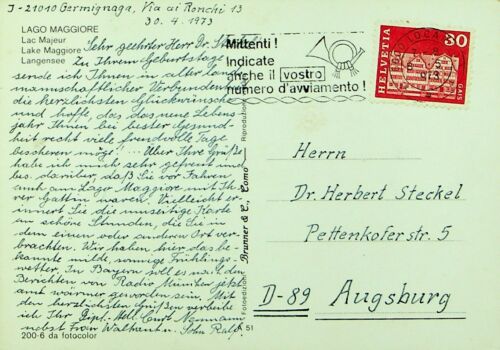 J-21010 Germignaga, Via ai Ronchi 13
30. 4. 1973
LAGO MAGGIORE
Lac Majeur
Lake Maggiore
Langensee
Sehr geehrter Herr Dr. Steckel!
Zu Ihrem Geburtstage
sende ich Ihnen in alter lands-
mannschaftlicher Verbundenheit
die herzlichsten Glückwünsche
und hoffe, daß das neue Lebens-
jahr Ihnen bei bester Gesund-
heit recht viele freudvolle Tage
bescheren möge! Über Ihre Grüße
habe ich mich sehr gefreut und
bes. darüber, daß Sie vor Jahren
auch am Lago Maggiore mit Ih-
rer Gattin waren. Vielleicht er-
innert Sie die umseitige Karte
an schöne Stunden, die Sie in
dem einen oder anderen Ort ver-
brachten. Wir haben hier das be-
kannte milde, sonnige Frühlings-
wetter. In Bayern soll es nach den
Berichten von Radio München jetzt
auch wärmer geworden sein. Mit
den herzlichsten Grüßen verbleibe
ich Ihr Dipl. Curt Neumann
nebst Frau Waltraut u. Sohn Ralf.
200-6 da fotocolor
Brunner & C., Como
Riproduzione
A 51
Mittenti !
Indicate
anche il vostro
numero d'avviamento !
HELVETIA
30
Herrn
Dr. Herbert Steckel
Pettenkoferstr. 5
D-89 Augsburg